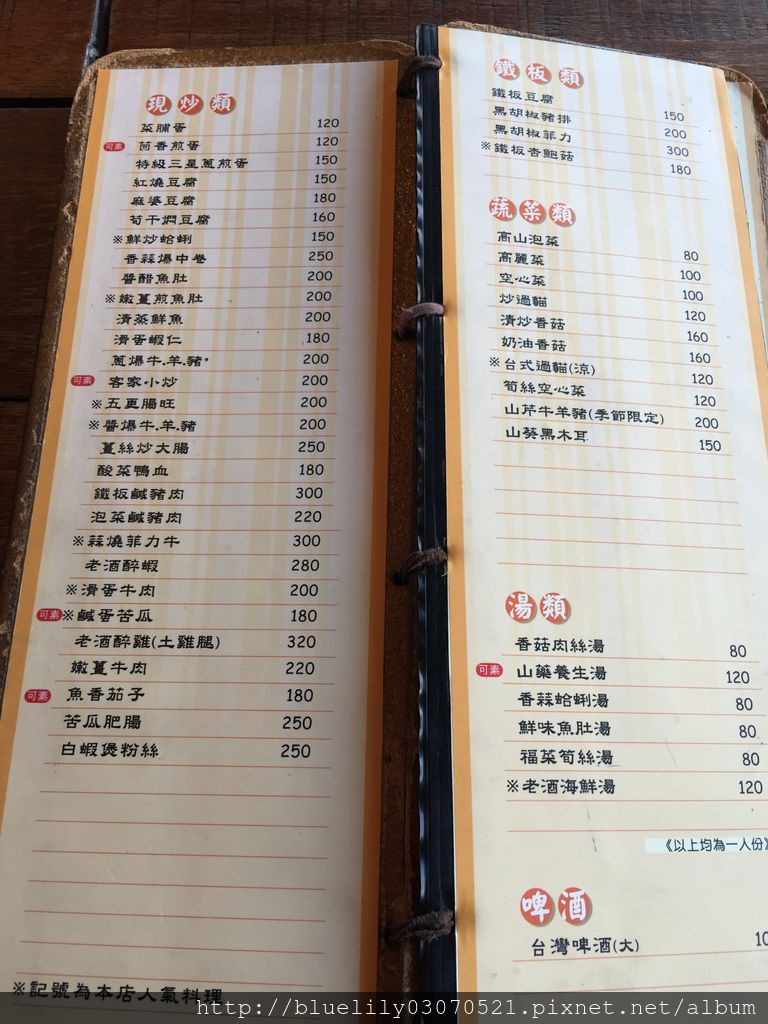 現炒類
菜脯蛋 120
可素 茴香煎蛋 120
特級三星蔥煎蛋 150
紅燒豆腐 150
麻婆豆腐 180
筍干燜豆腐 160
※鮮炒蛤蜊 150
香蒜爆中卷 250
醬醋魚肚 200
※嫩薑煎魚肚 200
清蒸鮮魚 200
滑蛋蝦仁 180
蔥爆牛.羊.豬* 200
可素 客家小炒 200
※五更腸旺 200
※醬爆牛.羊.豬 200
薑絲炒大腸 250
酸菜鴨血 180
鐵板鹹豬肉 300
泡菜鹹豬肉 220
※蒜燒菲力牛 300
老酒醉蝦 280
※滑蛋牛肉 200
可素 ※鹹蛋苦瓜 180
老酒醉雞(土雞腿) 320
嫩薑牛肉 220
可素 魚香茄子 180
苦瓜肥腸 250
白蝦煲粉絲 250
※記號為本店人氣料理
鐵板類
鐵板豆腐 150
黑胡椒豬排 200
黑胡椒菲力 300
※鐵板杏鮑菇 180
蔬菜類
高山泡菜 80
高麗菜 100
空心菜 100
炒過貓 120
清炒香菇 160
奶油香菇 160
※台式過貓(涼) 120
筍絲空心菜 120
山芹牛羊豬(季節限定) 200
山葵黑木耳 150
湯類
香菇肉絲湯 80
可素 山藥養生湯 120
香蒜蛤蜊湯 80
鮮味魚肚湯 80
福菜筍絲湯 80
※老酒海鮮湯 120
《以上均為一人份》
啤酒
台灣啤酒(大)
http://bluelily03070521.pixnet.net/album